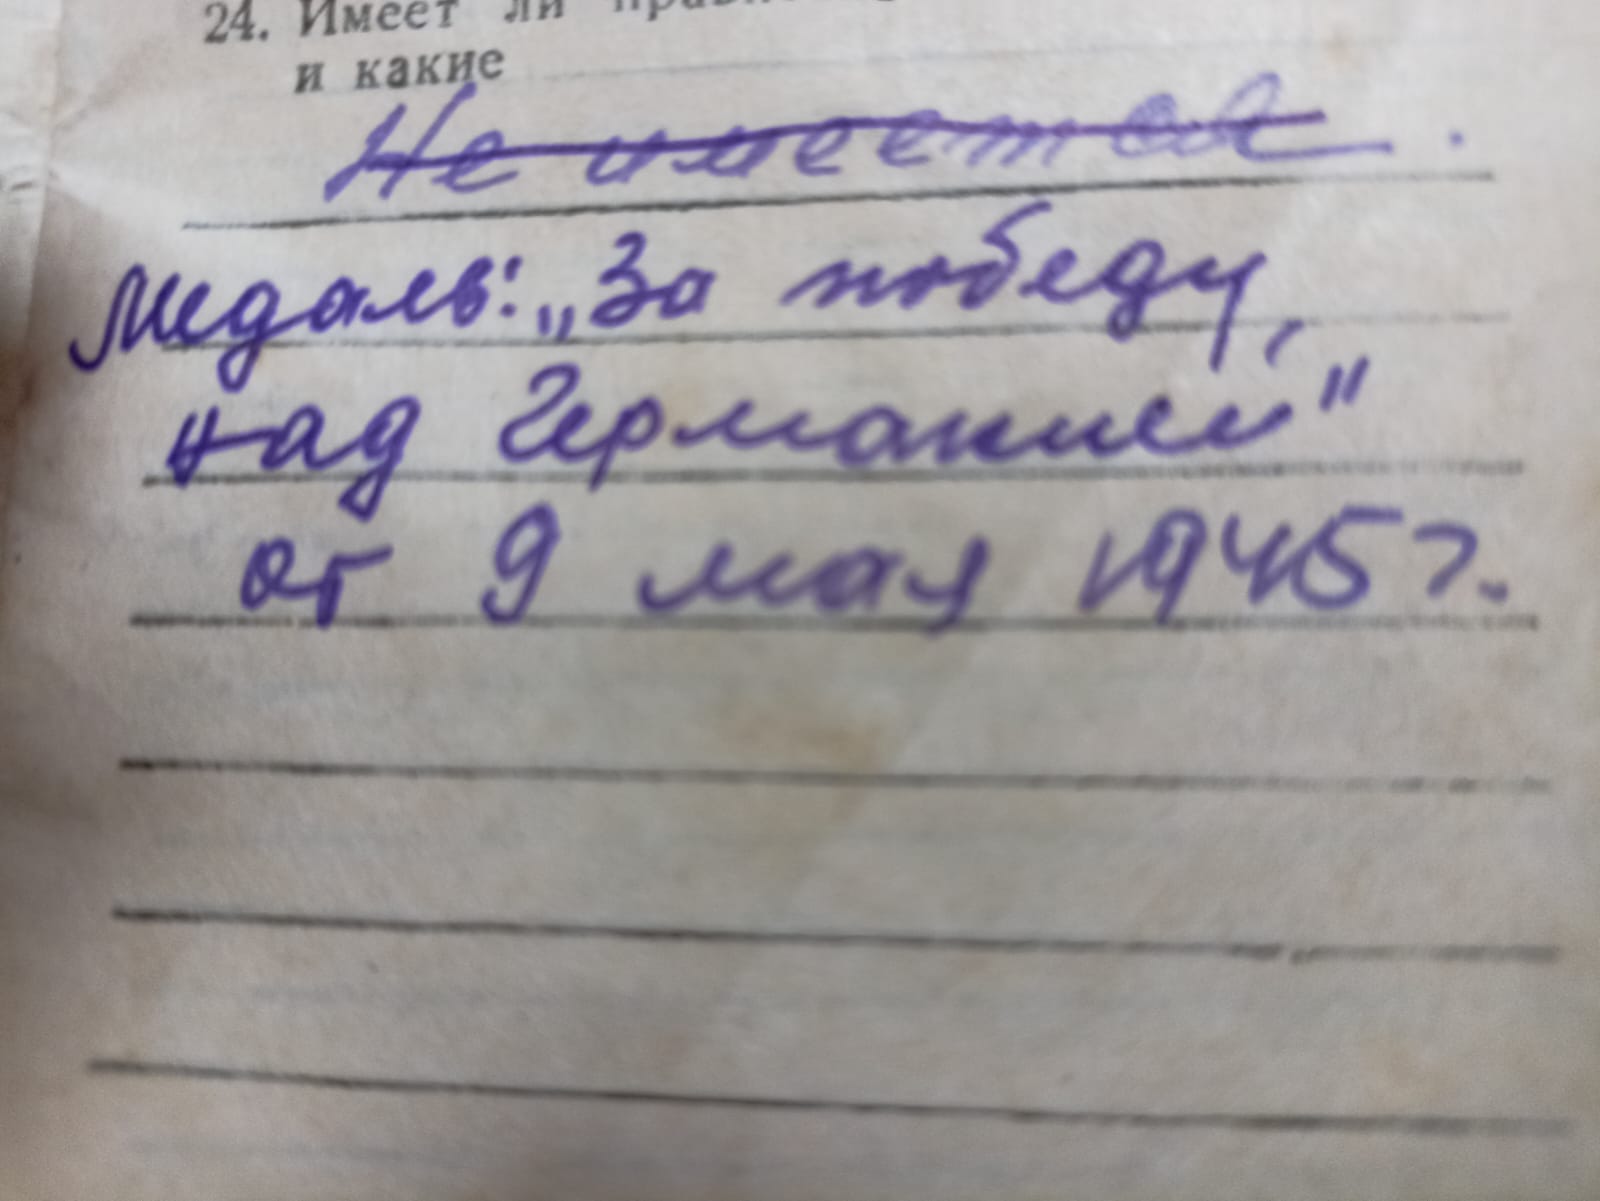 24. Имеет ли
и какие
Не имеется.
Медаль: „За победу,
над Германией"
от 9 мая 1945 г.